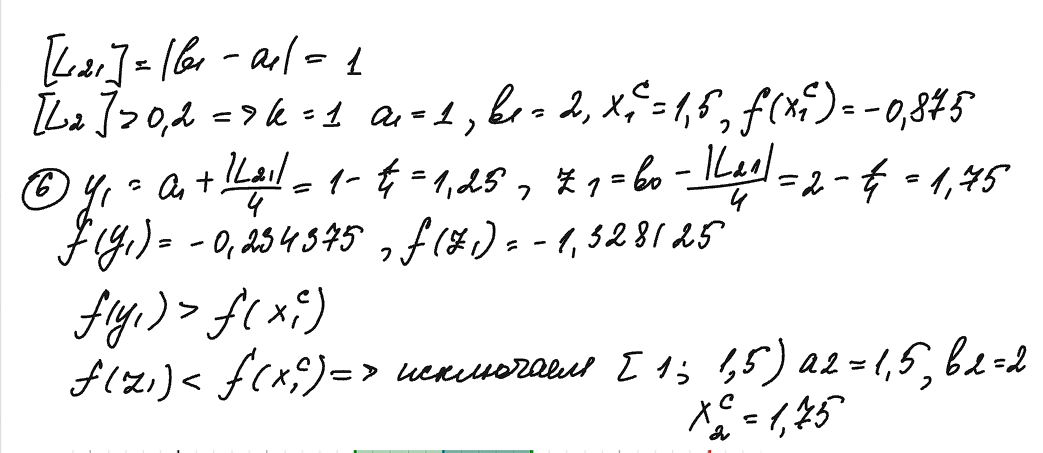 [L₂₁] = |b₁ - a₁| = 1
[L₂] > 0,2 => k = 1 a₁ = 1, b₁ = 2, x₁ᶜ = 1,5, f(x₁ᶜ) = -0,875
⑥ y₁ = a₁ + |L₂₁|/4 = 1 - 1/4 = 1,25, z₁ = b₀ - |L₂₁|/4 = 2 - 1/4 = 1,75
f(y₁) = -0,234375, f(z₁) = -1,328125
f(y₁) > f(x₁ᶜ)
f(z₁) < f(x₁ᶜ) => исключаем [1; 1,5) a2 = 1,5, b2 = 2
x₂ᶜ = 1,75